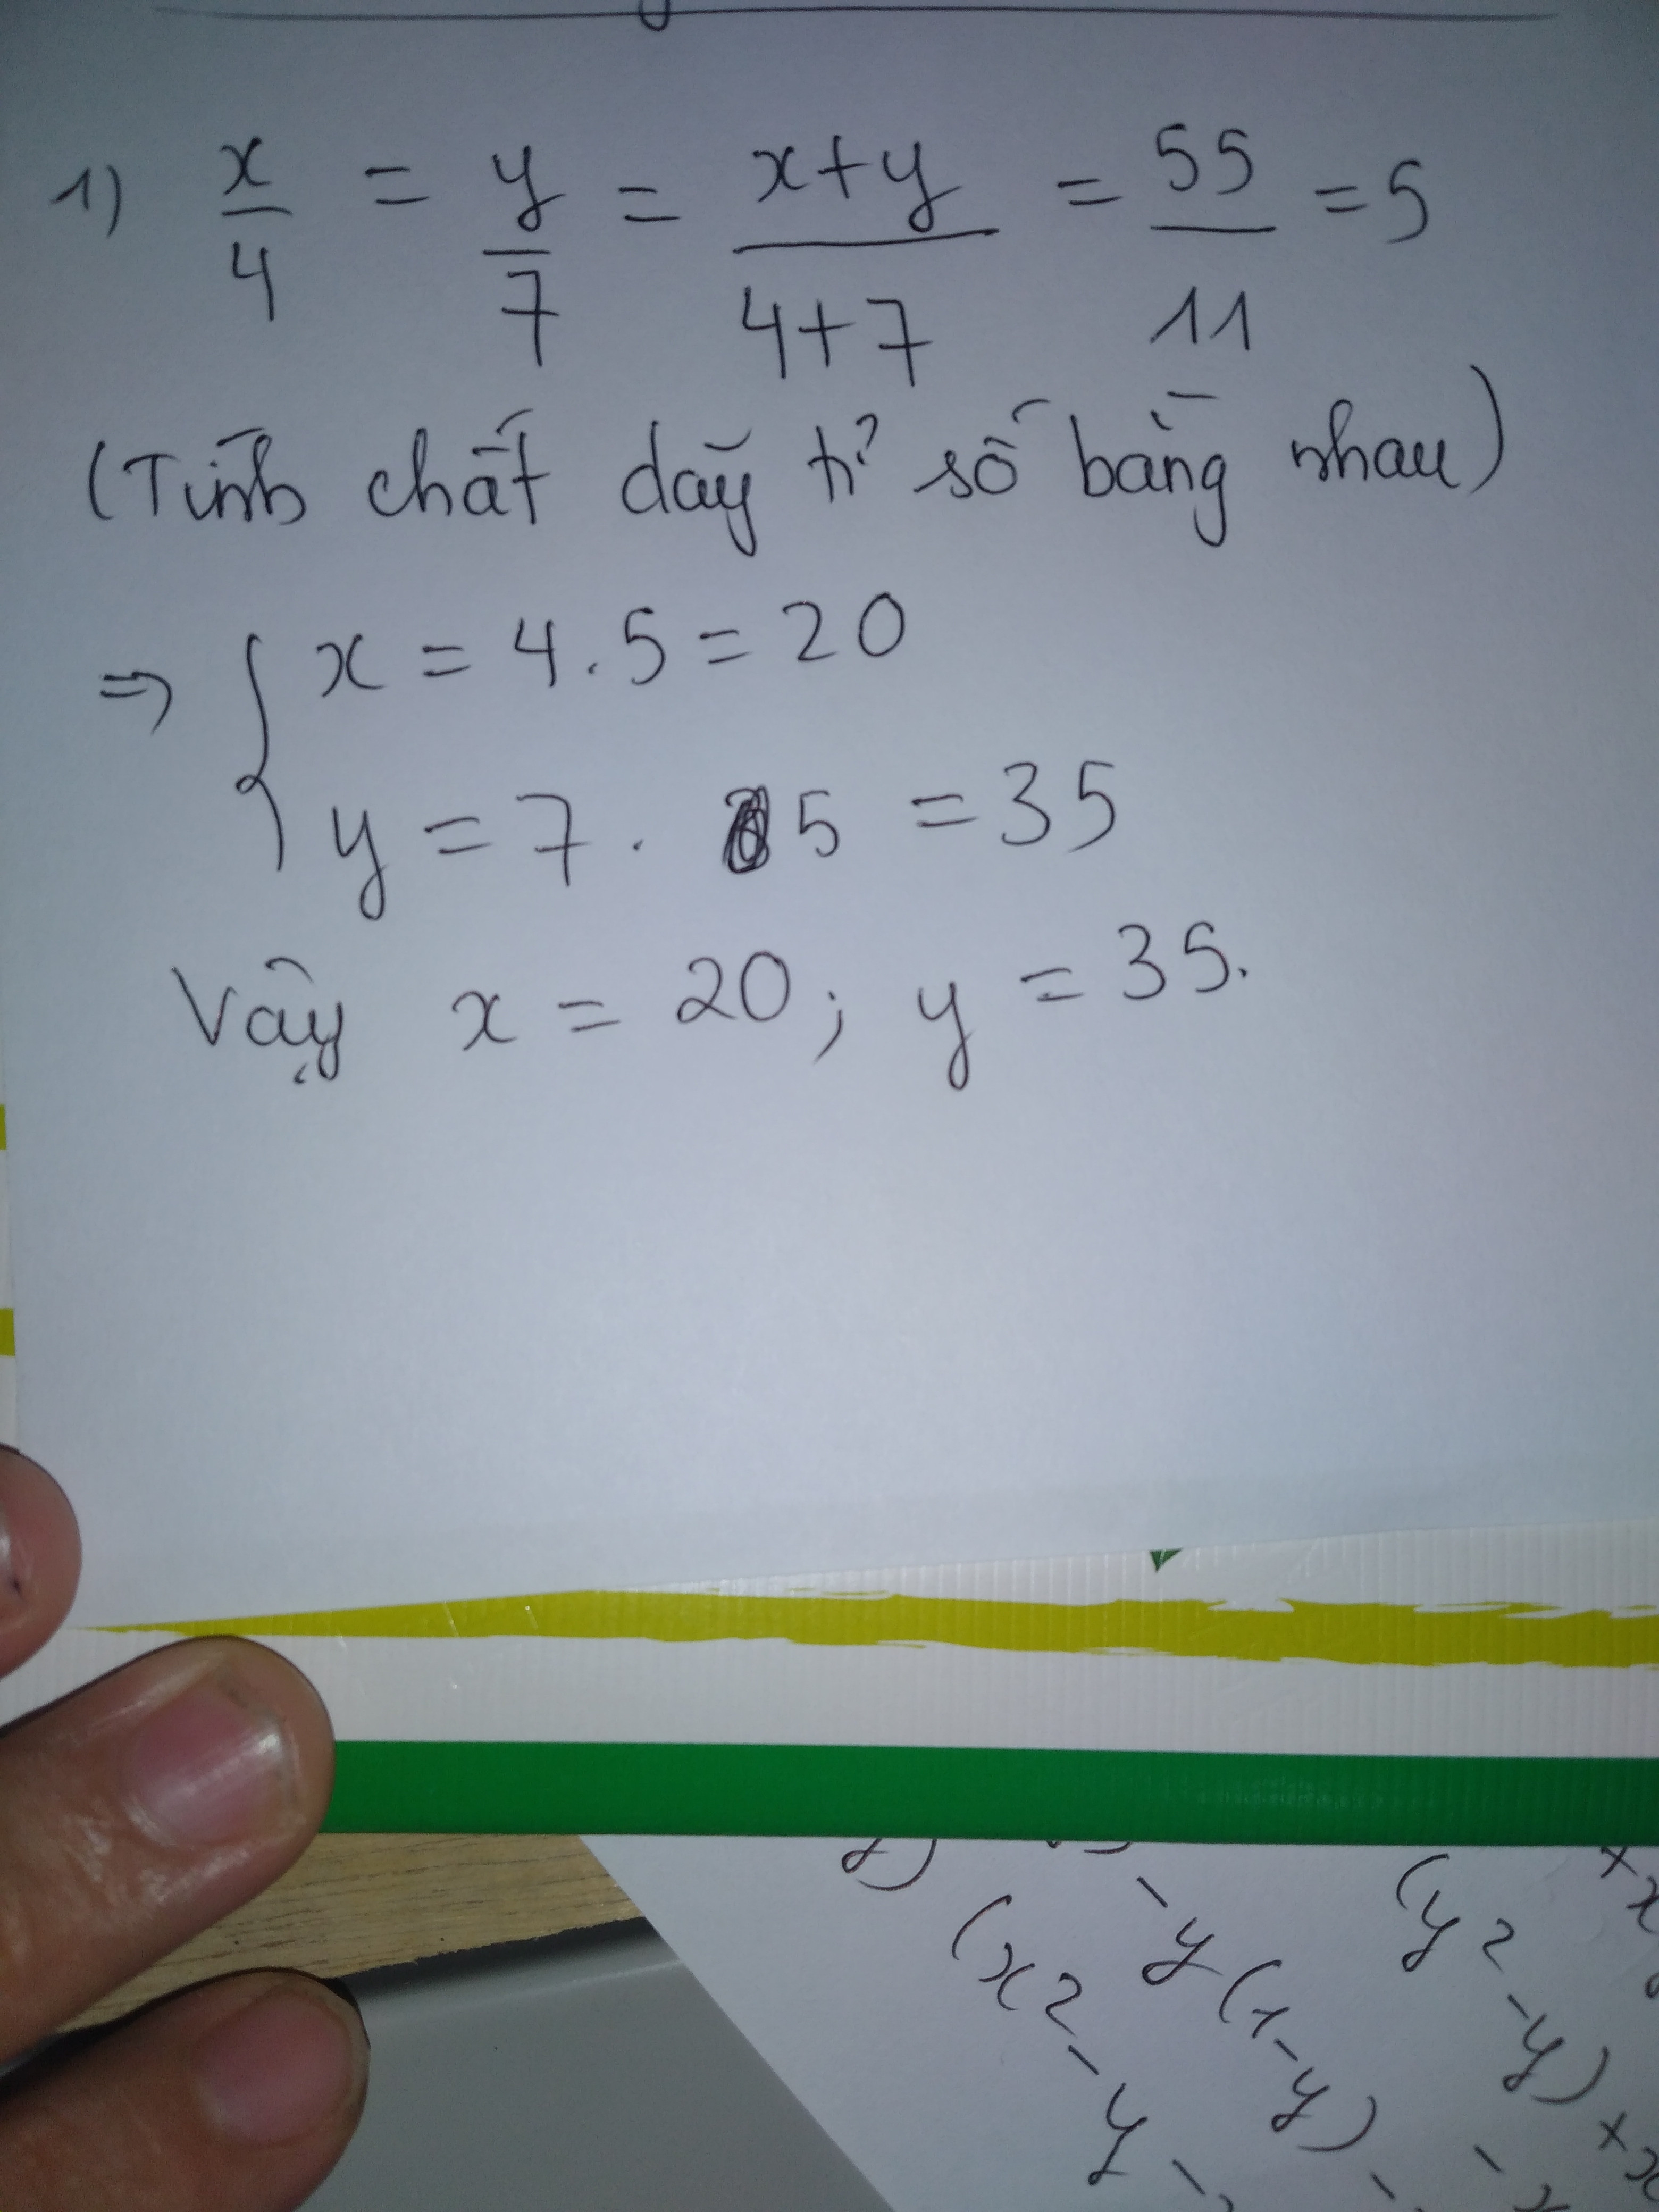 1) x/4 = y/7 = x+y/4+7 = 55/11 = 5
(Tính chất dãy tỉ số bằng nhau)
⇒ { x = 4.5 = 20
y = 7 . 5 = 35
Vậy x = 20; y = 35.
(y2 - y)
- y(1-y)
(x2 - y